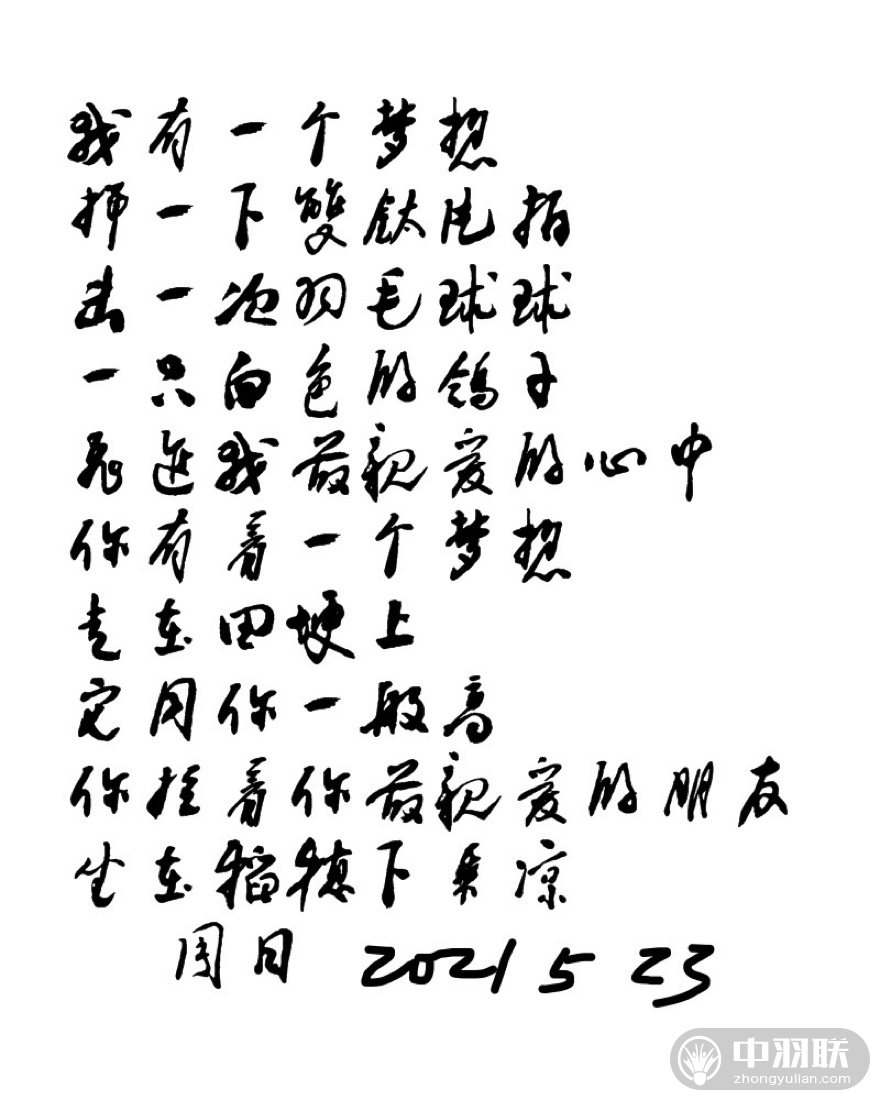 我有一个梦想
挥一下雙鈦凡拍
击一次羽毛球球
一只白色的鸽子
飛進我最親爱的心中
你有着一个梦想
走在田埂上
定同你一般高
你拴着你最親爱的朋友
坐在稻穗下乘凉
周日 2021 5 23
中羽联
zhongyulian.com